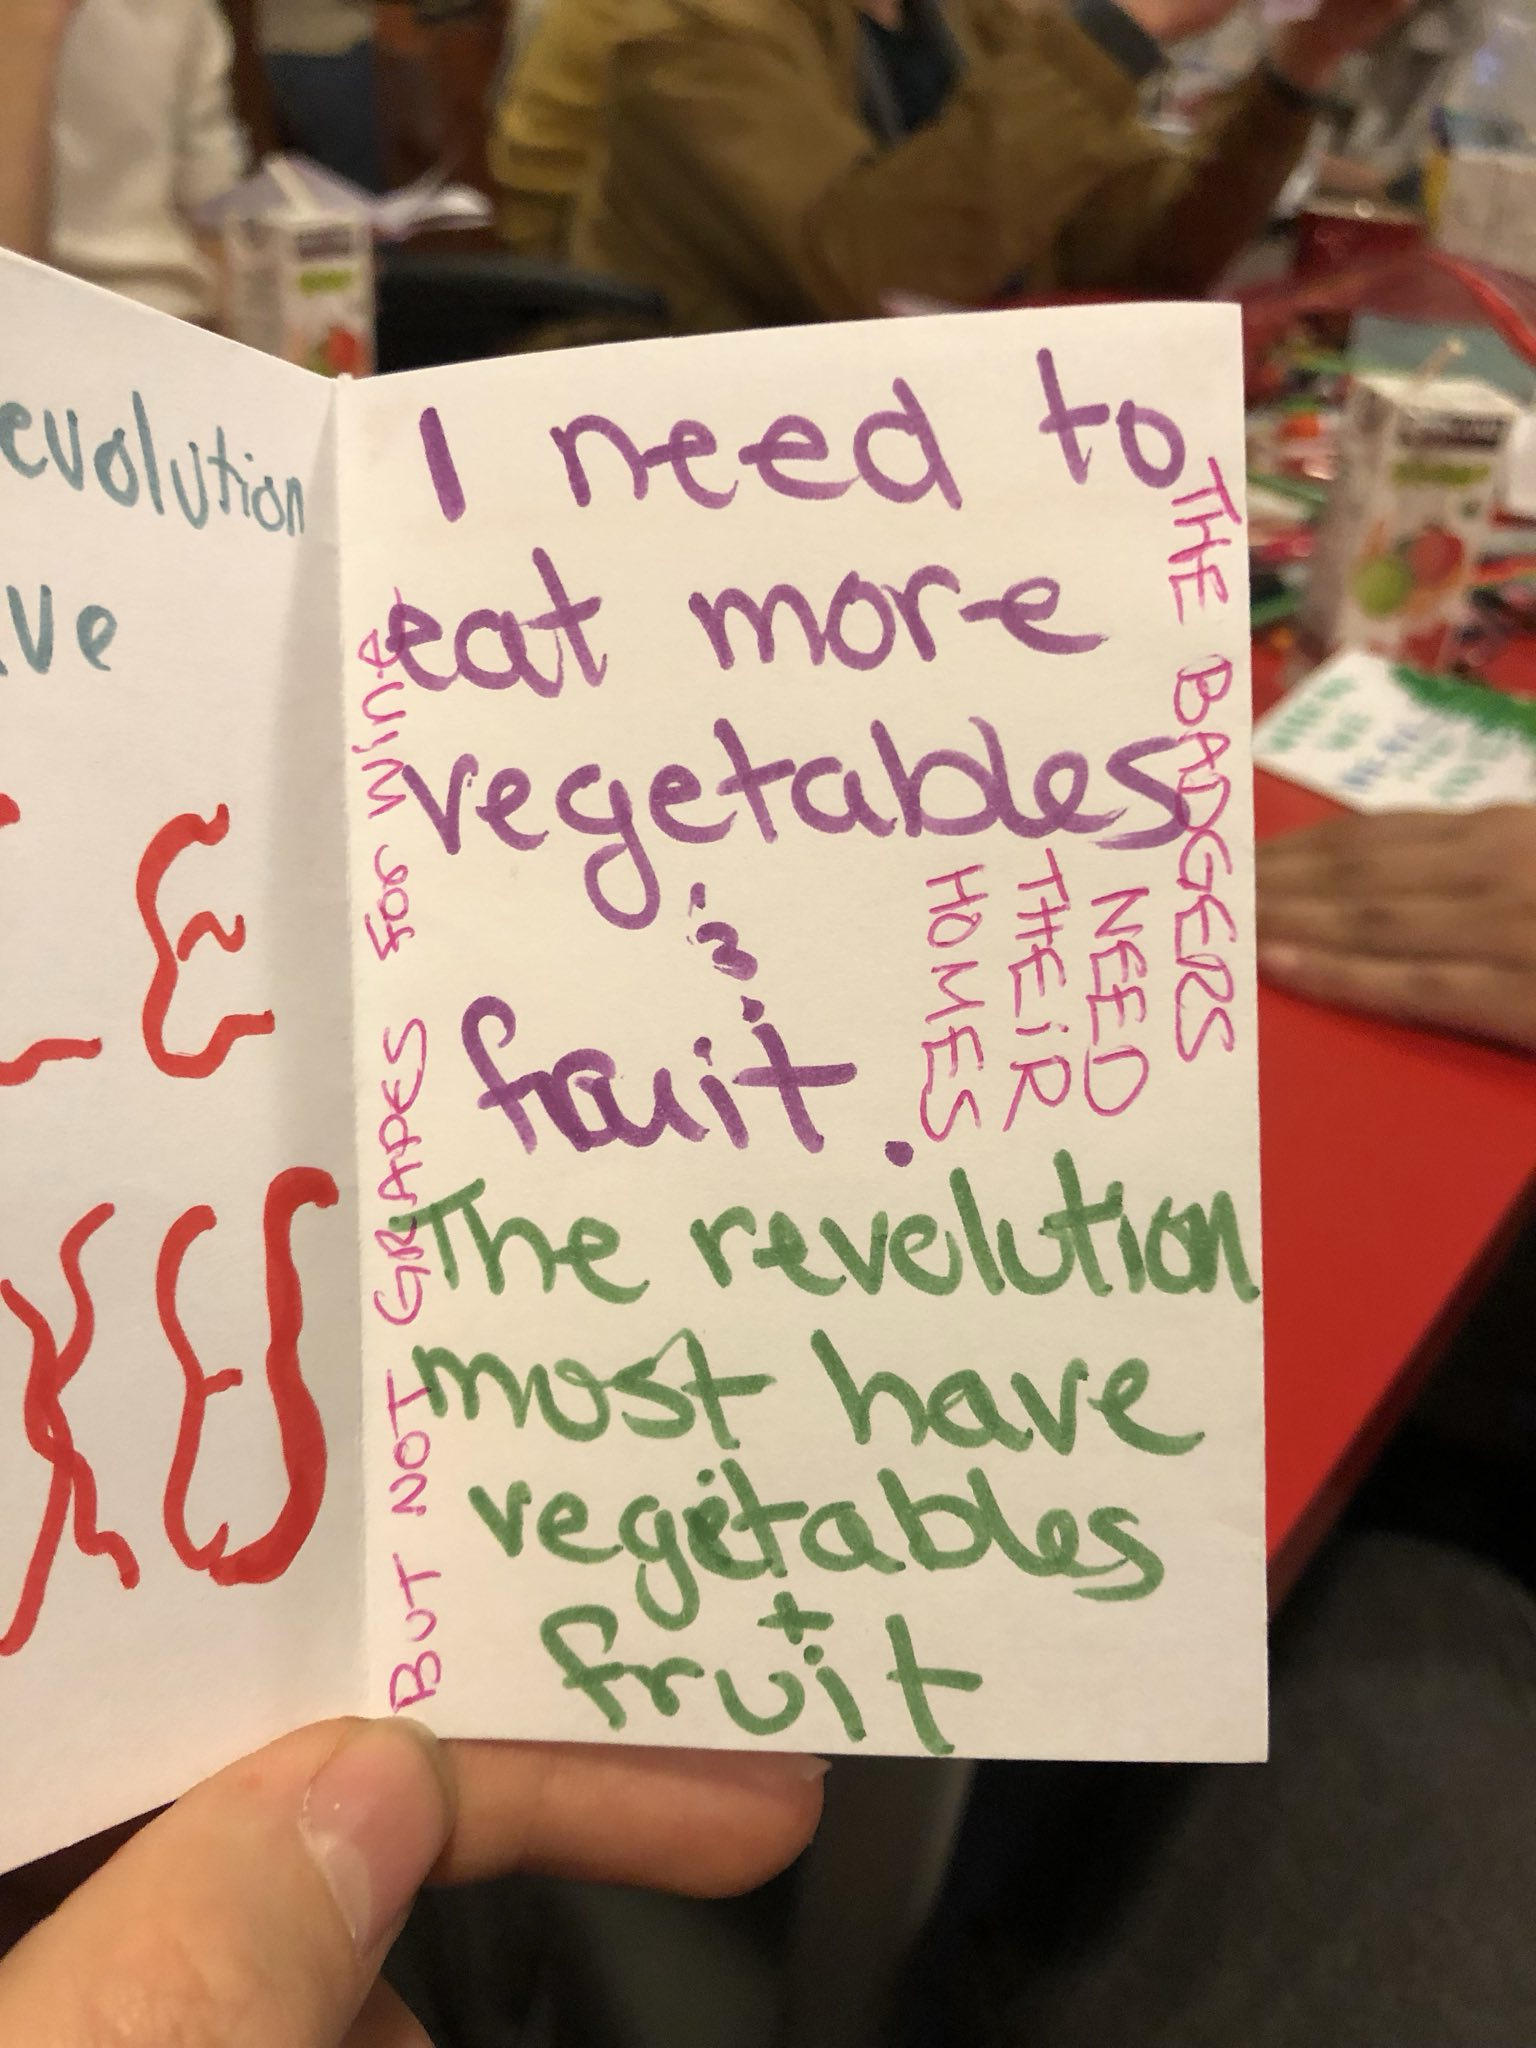 evolution
ve
I need to
eat more
vegetables
&
fruit.
The revolution
must have
vegetables
+
fruit
THE BADGERS
NEED
THEIR
HOMES
BUT NOT GRAPES FOR WINE